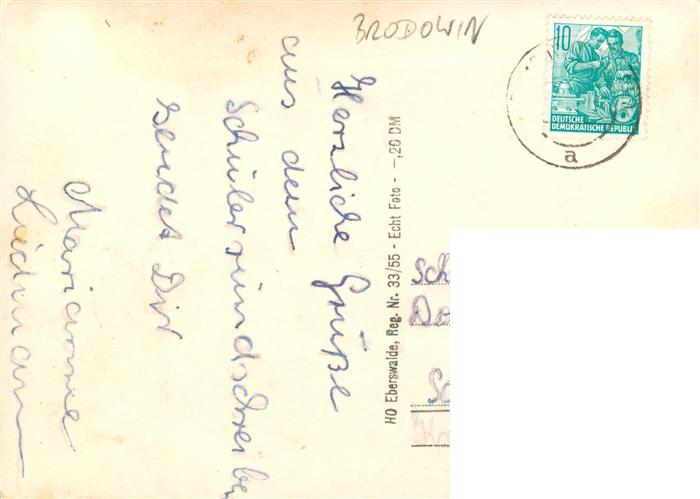 BRODOWIN
10
DEUTSCHE
DEMOKRATISCHE REPUBLIK
a
Herzliche Grüße
aus dem
Schülerrundschreibe
sendet Dir
Marianne
HO Eberswalde, Reg. Nr. 33/55 - Echt Foto - -,20 DM
Sch
Do